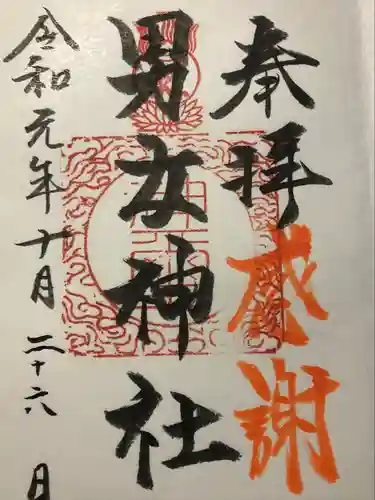 奉拝
感謝
男女神社
令和元年十月二十六日